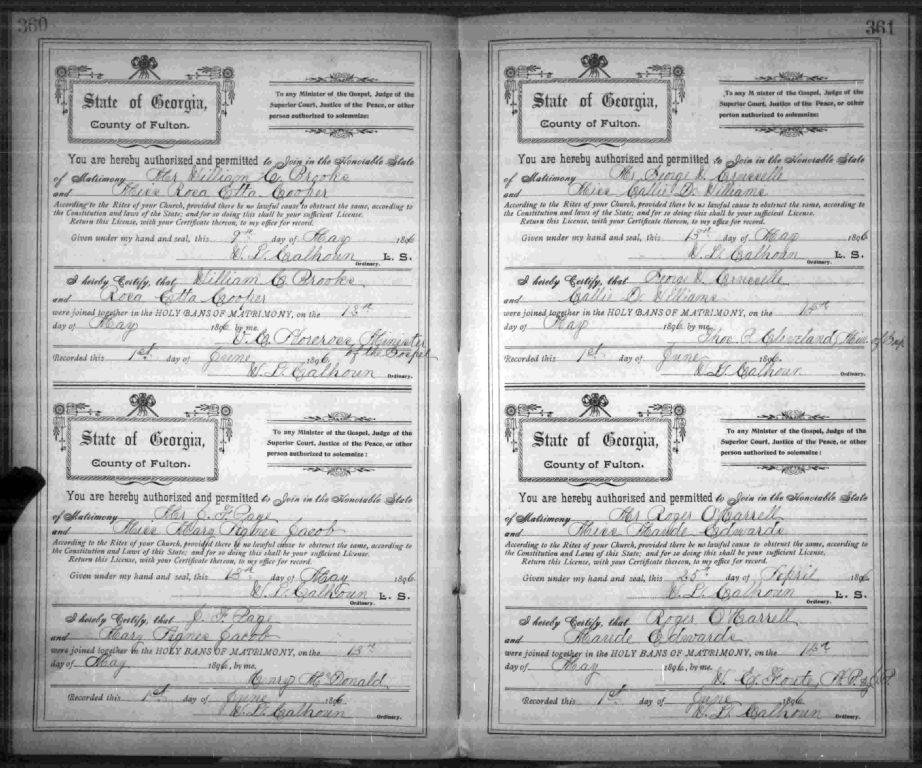 360
State of Georgia,
County of Fulton.
To any Minister of the Gospel, Judge of the
Superior Court, Justice of the Peace, or other
person authorized to solemnize:
You are hereby authorized and permitted to Join in the Honorable State
of Matrimony Mr William C. Brooks
and Miss Rosa Etta Cooper
According to the Rites of your Church, provided there be no lawful cause to obstruct the same, according to
the Constitution and laws of the State; and for so doing this shall be your sufficient License.
Return this License, with your Certificate thereon, to my office for record.
Given under my hand and seal, this day of May 1896
W. L. Calhoun L. S.
Ordinary.
I hereby Certify, that William C. Brooks
and Rosa Etta Cooper
were joined together in the HOLY BANS OF MATRIMONY, on the 13th
day of May 1896 by me.
Minister
of the Gospel
Recorded this 1st day of June 1896.
W. L. Calhoun
Ordinary.
State of Georgia,
County of Fulton.
To any Minister of the Gospel, Judge of the
Superior Court, Justice of the Peace, or other
person authorized to solemnize:
You are hereby authorized and permitted to Join in the Honorable State
of Matrimony Mr J. F. Page
and Miss Mary Agnes Jacob
According to the Rites of your Church, provided there be no lawful cause to obstruct the same, according to
the Constitution and Laws of this State; and for so doing this shall be your sufficient License.
Return this License, with your Certificate thereon, to my office for record.
Given under my hand and seal, this 13th day of May 1896
W. L. Calhoun L. S.
Ordinary.
I hereby Certify, that J. F. Page
and Mary Agnes Jacob
were joined together in the HOLY BANS OF MATRIMONY, on the 13th
day of May 1896, by me,
Henry McDonald
Recorded this 1st day of June 1896.
W. L. Calhoun
Ordinary.
361
State of Georgia,
County of Fulton.
To any Minister of the Gospel, Judge of the
Superior Court, Justice of the Peace, or other
person authorized to solemnize:
You are hereby authorized and permitted to Join in the Honorable State
of Matrimony Mr. George
and Miss Callie D. Williams
According to the Rites of your Church, provided there be no lawful cause to obstruct the same, according to
the Constitution and laws of the State; and for so doing this shall be your sufficient License.
Return this License, with your Certificate thereon, to my office for record.
Given under my hand and seal, this 13th day of May 1896
W. L. Calhoun L. S.
Ordinary.
I hereby Certify, that George
and Callie D. Williams
were joined together in the HOLY BANS OF MATRIMONY, on the
day of May 1896 by me.
Thos. P. Cleveland, Min. of Gosp
Recorded this 1st day of June 1896.
W. L. Calhoun
Ordinary.
State of Georgia,
County of Fulton.
To any Minister of the Gospel, Judge of the
Superior Court, Justice of the Peace, or other
person authorized to solemnize:
You are hereby authorized and permitted to Join in the Honorable State
of Matrimony Mr Roger O'Farrell
and Miss Maude Edwards
According to the Rites of your Church, provided there be no lawful cause to obstruct the same, according to
the Constitution and Laws of this State; and for so doing this shall be your sufficient License.
Return this License, with your Certificate thereon, to my office for record.
Given under my hand and seal, this 25th day of April 1896
W. L. Calhoun L. S.
Ordinary.
I hereby Certify, that Roger O'Farrell
and Maude Edwards
were joined together in the HOLY BANS OF MATRIMONY, on the
day of May 1896, by me,
W. E. Foster,
Recorded this 1st day of June 1896
W. L. Calhoun
Ordinary.